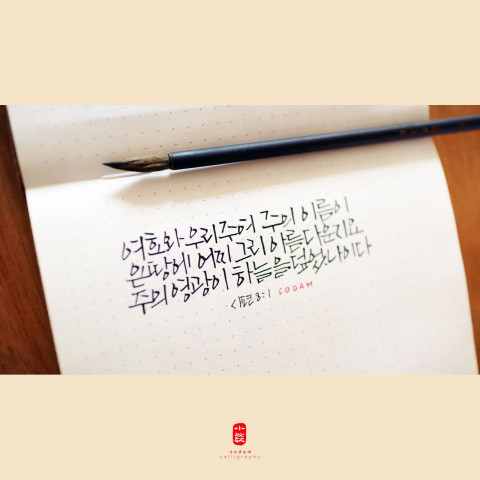 여호와 우리주여 주의 이름이
온땅에 어찌 그리 아름다운지요
주의 영광이 하늘을 덮었나이다
<시편 8:1 SODAM
小
sodam
calligraphy